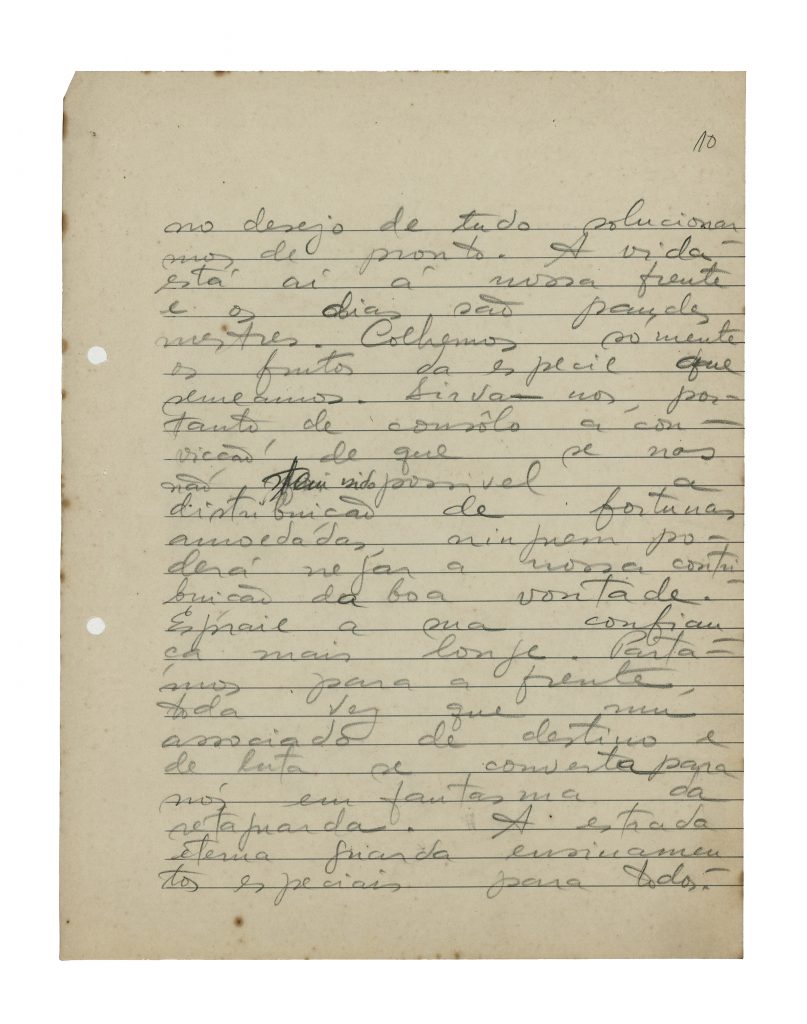 10
no desejo de tudo solucionar
mos de pronto. A vida
está aí á nossa frente
e os dias são grandes
mestres. Colhemos sómente
os frutos da especie que
semeamos. Sirva-nos por-
tanto de consôlo a con-
vicção de que se nos
não tem sido possivel a
distribuição de fortunas
amoedadas, ninguem po-
derá negar a nossa contri
buição da boa vontade.
Espraie a sua confian
ça mais longe. Parta-
mos para a frente,
toda vez que um
associado de destino e
de luta se converta para
nós em fantasma da
retaguarda. A estrada
eterna guarda ensinamen
tos especiais para todos.